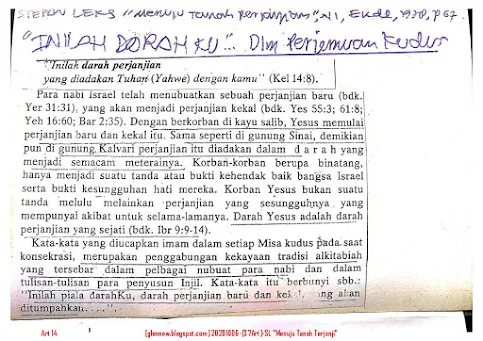 STEFAN LEKS "Menuju Tanah Perjanjian", VI, Ende, 1978, p 67.
"INILAH DARAH KU"... Dlm Perjamuan Kudus
"Inilah darah perjanjian
yang diadakan Tuhan (Yahwe) dengan kamu" (Kel 14:8).
Para nabi Israel telah menubuatkan sebuah perjanjian baru (bdk.
Yer 31:31), yang akan menjadi perjanjian kekal (bdk. Yes 55:3; 61:8;
Yeh 16:60; Bar 2:35). Dengan berkorban di kayu salib, Yesus memulai
perjanjian baru dan kekal itu. Sama seperti di gunung Sinai, demikian
pun di gunung Kalvari perjanjian itu diadakan dalam d a r a h yang
menjadi semacam meterainya. Korban-korban berupa binatang,
hanya menjadi suatu tanda atau bukti kehendak baik bangsa Israel
serta bukti kesungguhan hati mereka. Korban Yesus bukan suatu
tanda melulu melainkan perjanjian yang sesungguhnya yang
mempunyai akibat untuk selama-lamanya. Darah Yesus adalah darah
perjanjian yang sejati (bdk. Ibr 9:9-14).
Kata-kata yang diucapkan imam dalam setiap Misa kudus pada saat
konsekrasi, merupakan penggabungan kekayaan tradisi alkitabiah
yang tersebar dalam pelbagai nubuat para nabi dan dalam
tulisan-tulisan para penyusun Injil. Kata-kata itu berbunyi sbb.:
"Inilah piala darahKu, darah perjanjian baru dan kekal, yang akan
ditumpahkan....".
Art 14 (ghmnew.blogspot.com)20201008-(17Art)-SL "Menuju Tanah Terjanji"